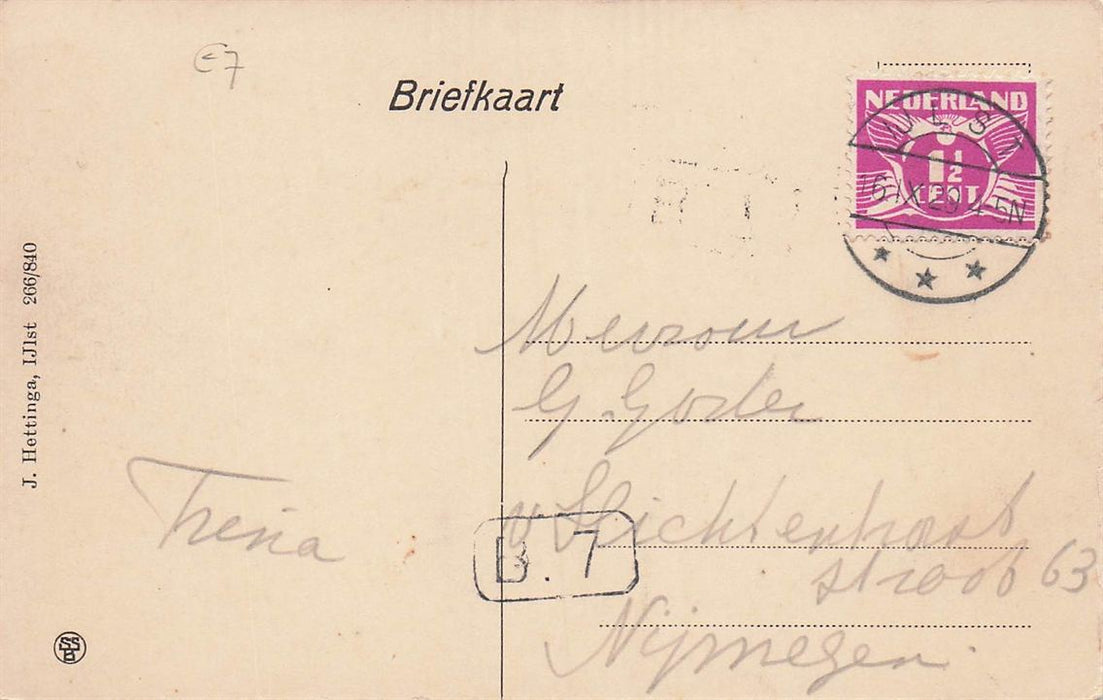 E7
Briefkaart
NEDERLAND
1½
CENT
IJLST
16.IX.29.4-5N
J. Hettinga, IJlst 266/840
Mevrouw
G. Goder
v Slichtenhorst
straat 63
Nijmegen.
B. 7
SSB